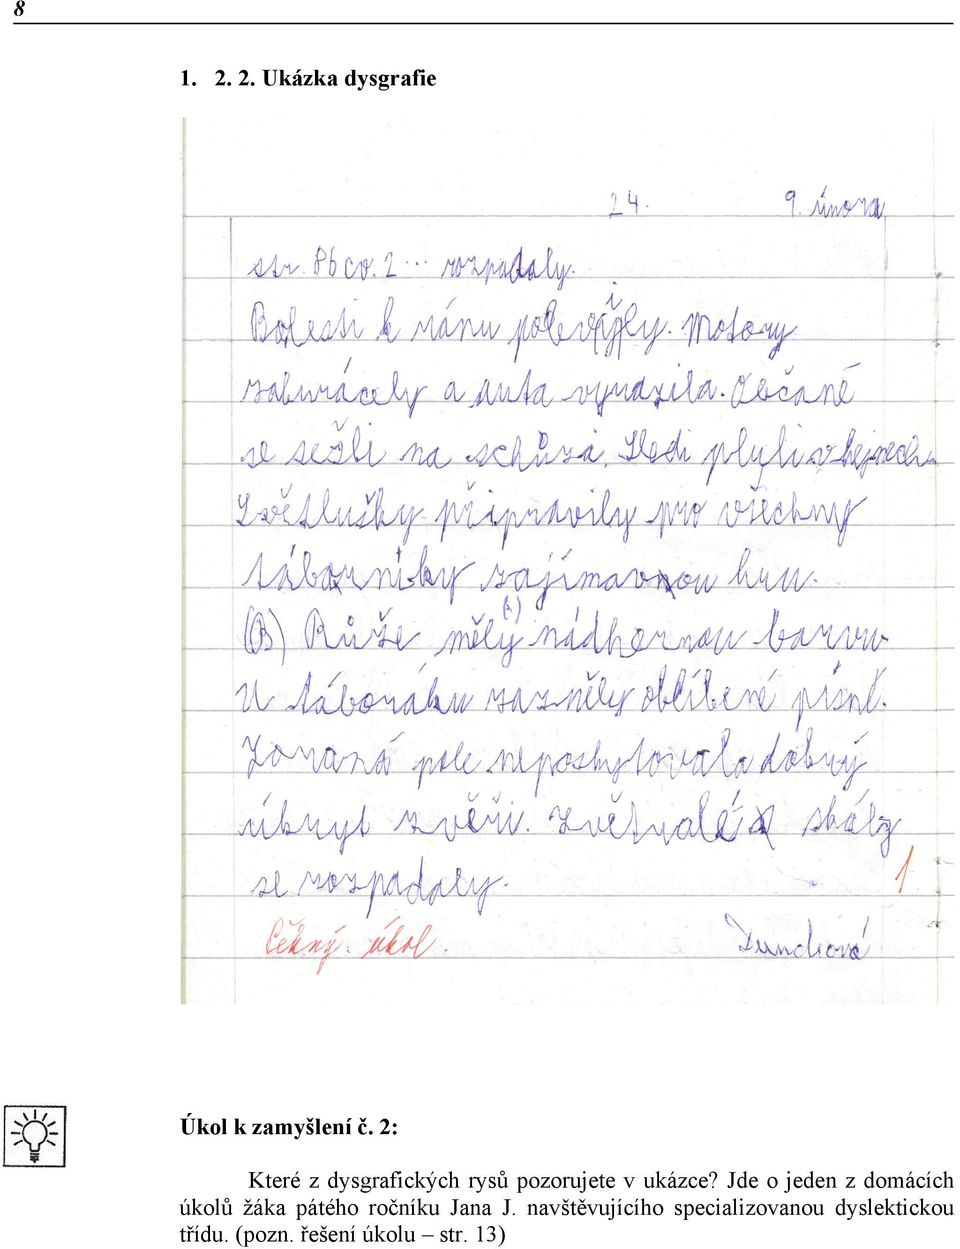 8
1. 2. 2. Ukázka dysgrafie
24. 9. února
str. 86 cv. 2 ... rozpadaly.
Bolesti k ránu polevily. Motory
zaburácely a auta vyrazila. Občané
se sešli na schůzi. Sledi plyli v hejnech.
Světlušky připravily pro všechny
táborníky zajímavou hru.
(B) Růže měly nádhernou barvu
U táboráku zazněly oblíbené písně.
Zoraná pole neposkytovala dobrý
úkryt zvěři. Zvětralé skály
se rozpadaly. 1
Pěkný úkol.
Úkol k zamyšlení č. 2:
Které z dysgrafických rysů pozorujete v ukázce? Jde o jeden z domácích
úkolů žáka pátého ročníku Jana J. navštěvujícího specializovanou dyslektickou
třídu. (pozn. řešení úkolu – str. 13)